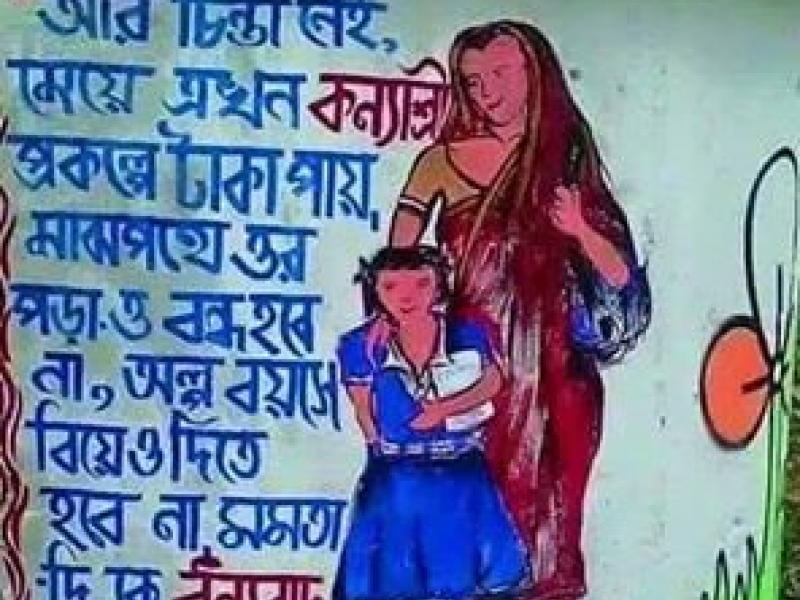 আর চিন্তা নেই,
মেয়ে এখন কন্যাশ্রী
প্রকল্পে টাকা পায়,
মাঝপথে ওর
পড়া-ও বন্ধ হবে
না, অল্প বয়সে
বিয়েও দিতে
হবে না, মমতা
দি কে ধন্যবাদ